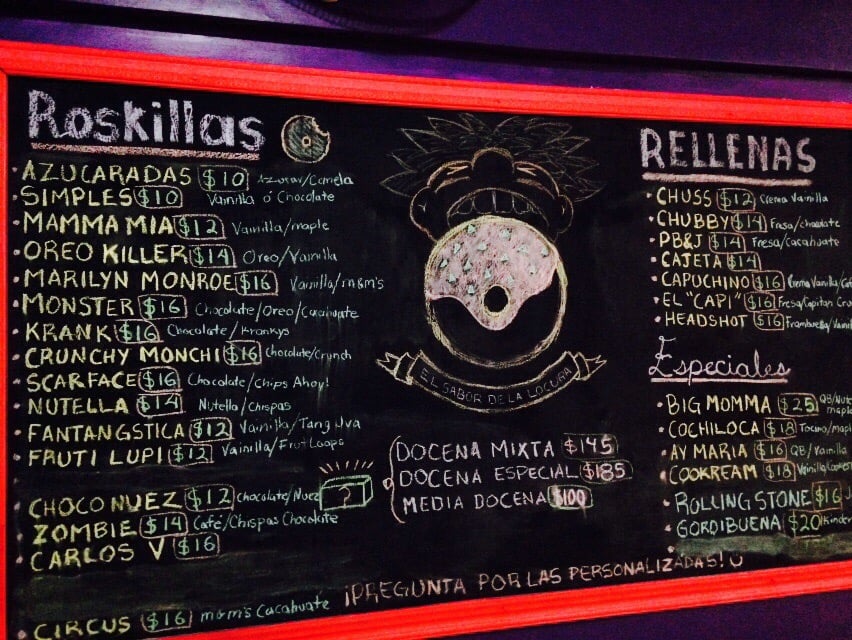 Roskillas
AZUCARADAS $10 Azucar/Canela
SIMPLES $10 Vainilla ó Chocolate
MAMMA MIA $12 Vainilla/maple
OREO KILLER $14 Oreo/Vainilla
MARILYN MONROE $16 Vainilla/m&m's
MONSTER $16 Chocolate/Oreo/Cacahuate
KRANK $16 Chocolate/Krankys
CRUNCHY MONCHI $16 Chocolate/Crunch
SCARFACE $16 Chocolate/Chips Ahoy!
NUTELLA $14 Nutella/Chispas
FANTANGSTICA $12 Vainilla/Tang Uva
FRUTI LUPI $12 Vainilla/Frut Loops
CHOCO NUEZ $12 Chocolate/Nuez
ZOMBIE $14 Café/Chispas Chocolate
CARLOS V $16
CIRCUS $16 m&m's Cacahuate
EL SABOR DE LA LOCURA
?
DOCENA MIXTA $145
DOCENA ESPECIAL $185
MEDIA DOCENA $100
¡PREGUNTA POR LAS PERSONALIZADAS!
RELLENAS
CHUSS $12 Crema Vainilla
CHUBBY $14 Fresa/chocolate
PB&J $14 Fresa/cacahuate
CAJETA $14
CAPUCHINO $16 Crema Vainilla/Caf
EL "CAPI" $16 Fresa/Capitan Cru
HEADSHOT $16 Frambuesa/Vainil
Especiales
BIG MOMMA $25 QB/Nute maple
COCHILOCA $18 Tocino/mapl
AY MARIA $16 QB/Vainilla
COOKREAM $18 Vainilla/Cookies
ROLLING STONE $16
GORDIBUENA $20 Kinder